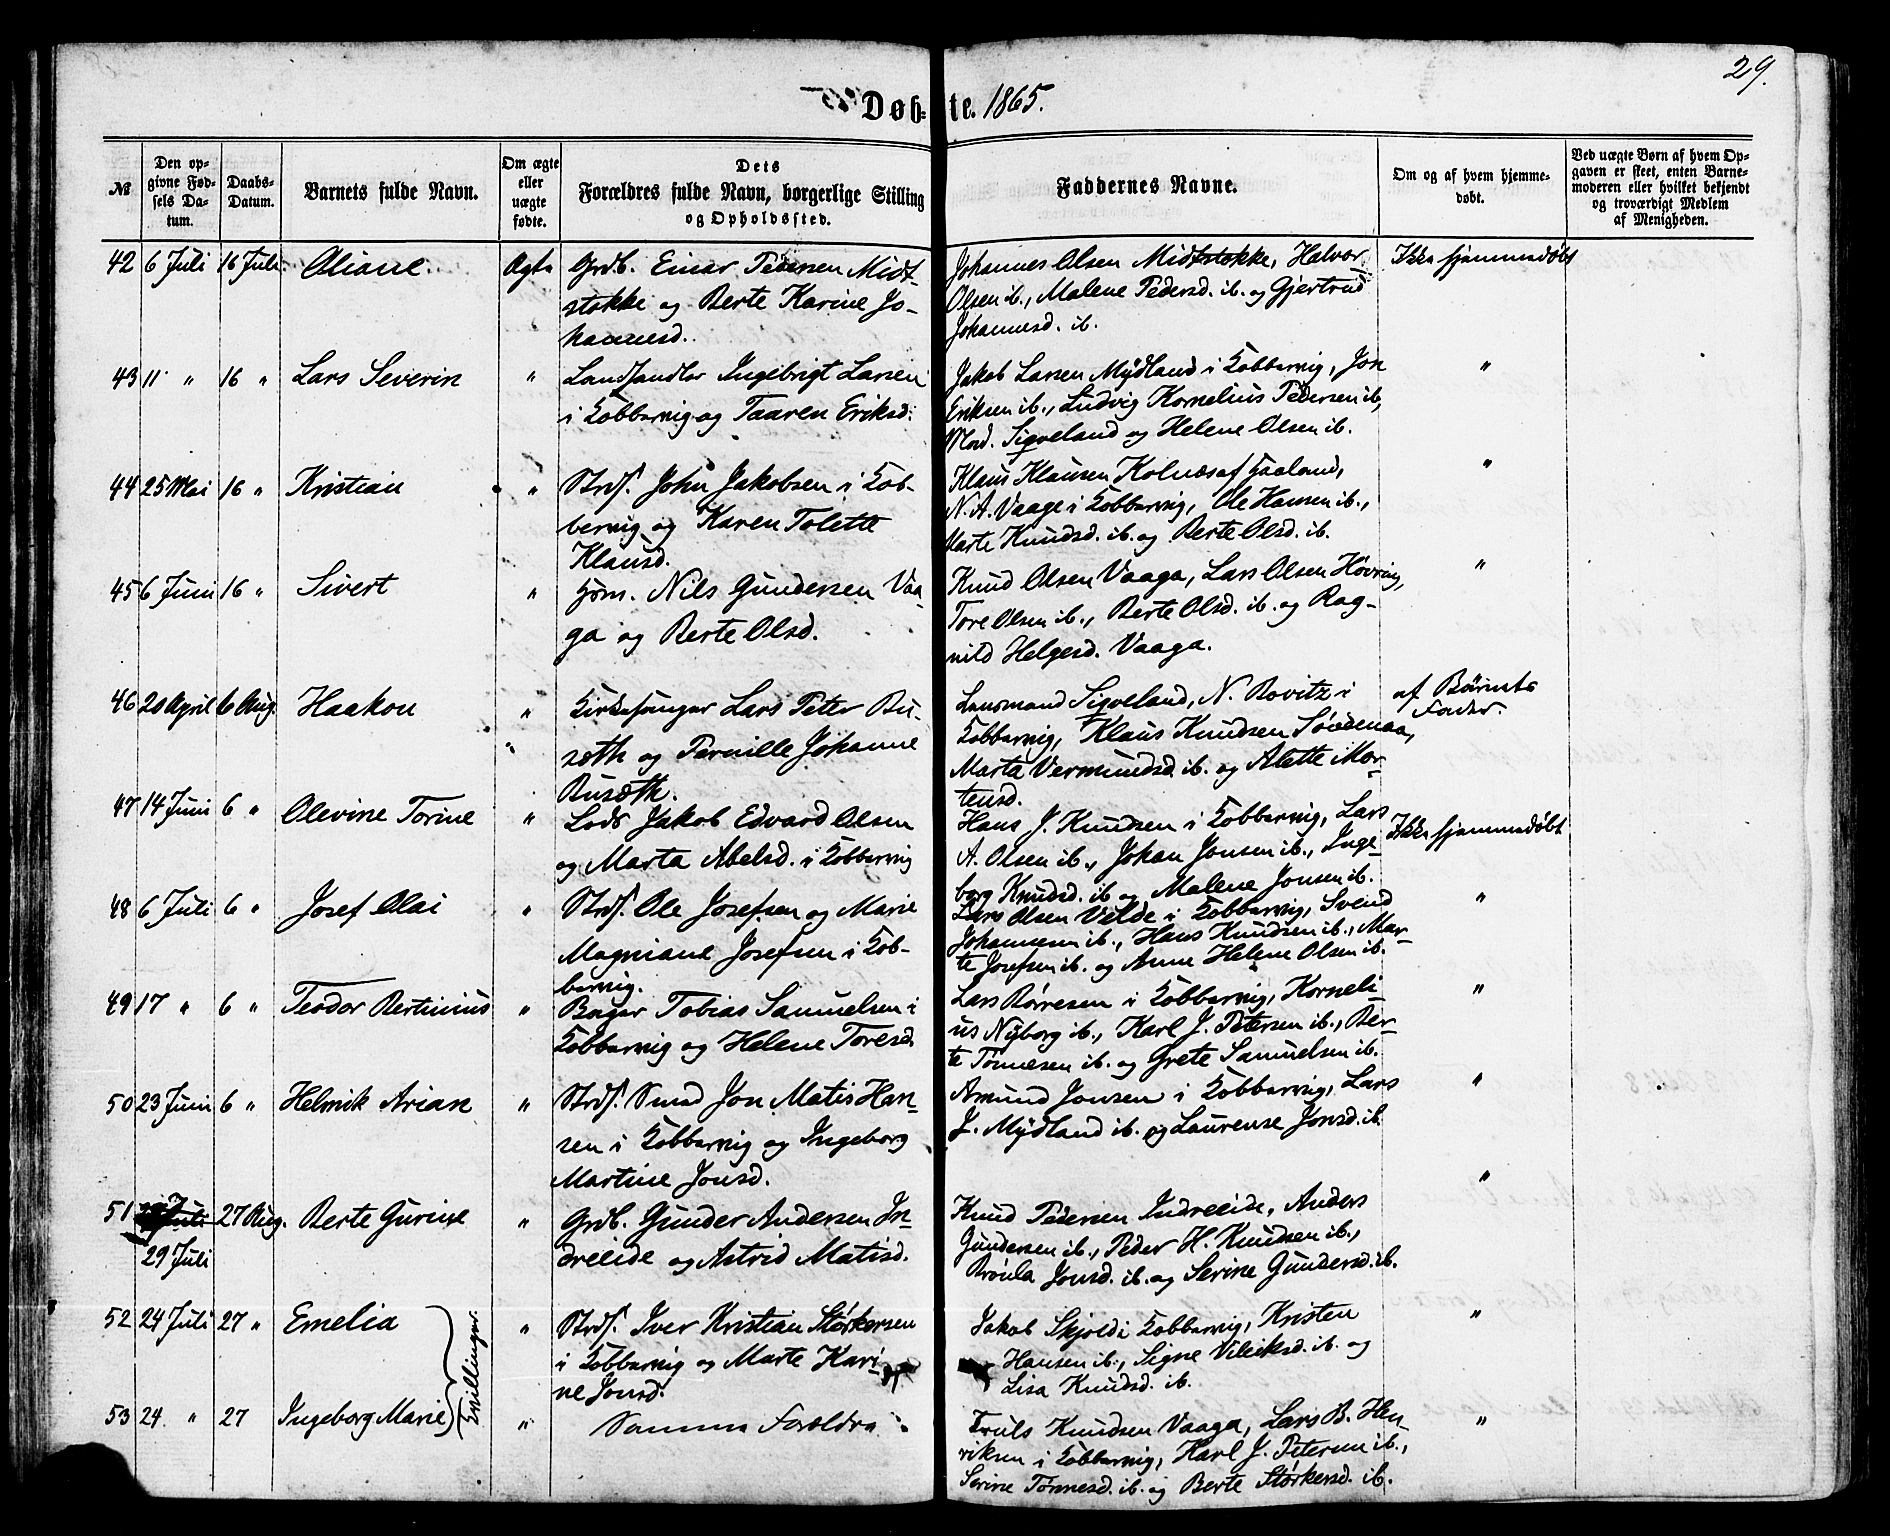 29.
Døbte. 1865.
№
Den opgivne Fødsels Datum.
Daabs-Datum.
Barnets fulde Navn.
Om ægte eller uægte fødte.
Dets Forældres fulde Navn, borgerlige Stilling og Opholdssted.
Faddernes Navne.
Om og af hvem hjemmedøbt.
Ved uægte Børn af hvem Opgaven er skeet, enten Barnemoderen eller hvilket bekjendt og troværdigt Medlem af Menigheden.
42 6 Juli 16 Juli. Oliane. Ægte Grdb. Einar Pedersen Midt-
stokke og Berte Karine Jo-
hannesd.
Johannes Olsen Midtstokke, Halvor
Olsen ib., Malene Pedersd. ib. og Gjertrud
Johannesd. ib.
Ikke hjemmedøbt
43 11 " 16 " Lars Severin " Landhandler Ingebrigt Larsen
i Kobbervig og Taaren Eriksd.
Jakob Larsen Mydland i Kobbervig, Jon
Eriksen ib., Ludvig Kornelius Pedersen ib,
Mad. Sigveland og Helene Olsen ib.
"
44 25 Mai 16 " Kristian " Strds. John Jakobsen i Kob-
bervig og Karen Tolette
Klausd.
Klaus Klausen Kolnes af Haaland,
N. A. Vaage i Kobbervig, Ole Hansen ib.,
Marte Knudsd. ib. og Berte Olsd. ib.
"
45 6 Juni 16 " Sivert " Hsm. Nils Gundersen Vaa-
ga og Berte Olsd.
Knud Olsen Vaaga, Lars Olsen Høvring,
Tore Olsen ib., Berte Olsd. ib. og Rag-
nild Helgesd. Vaaga.
"
46 20 April 6 Aug. Haakon " Kirkesanger Lars Peter Bu-
sæth og Pernille Johanne
Busæth.
Lensmand Sigveland, N. Rovitz i
Kobbervig, Klaus Knudsen Sørdenaa,
Marta Vermundsd. ib. og Alette Mor-
tensd.
af Barnets
Fader.
47 14 Juni 6 " Olevine Torine " Lods Jakob Edvard Olsen
og Marta Abelsd. i Kobbervig
Hans J. Knudsen i Kobbervig, Lars
A. Olsen ib., Johan Jonsen ib., Inge-
borg Knudsd. ib og Malene Jonsen ib.
Ikke hjemmedøbt
48 6 Juli 6 " Josef Olai " Strds. Ole Josefsen og Marie
Magniane Josefsen i Kob-
bervig.
Lars Olsen Velde i Kobbervig, Svend
Johannesen ib., Hans Knudsen ib., Mar-
te Josefsen ib. og Anne Helene Olsen ib.
"
49 17 " 6 " Teodor Bertinius " Bager Tobias Samuelsen i
Kobbervig og Helene Toresd.
Lars Børresen i Kobbervig, Korneli-
us Nyborg ib., Karl J. Petersen ib., Ber-
te Tønnesen ib. og Grete Samuelsen ib.
"
50 23 Juni 6 " Helmik Arian " Strds. Smed Jon Matis Han-
sen i Kobbervig og Ingeborg
Martine Jonsd.
Amund Jonsen i Kobbervig, Lars
J. Mydland ib. og Laurense Jonsd. ib.
"
51 Juli 27 Aug. Berte Gurine " Grdb. Gunder Andersen In-
29 Juli
dreeide og Astrid Matisd.
Knud Pedersen Indreeide, Anders
Gundersen ib., Peder H. Knudsen ib.,
Brønla Jonsd. ib. og Serine Gundersd. ib.
"
52 24 Juli 27 " Emelia " Strds. Iver Kristian Størkersen
i Kobbervig og Marte Kari-
ne Jonsd.
Tvillinger.
Jakob Skjold i Kobbervig, Kristen
Hansen ib., Signe Villiksd. ib. og
Lisa Knudsd. ib.
"
53 24. " 27 Ingeborg Marie " Samme Forældre
Truls Knudsen Vaaga, Lars B. Hen-
riksen i Kobbervig, Karl J. Petersen ib.,
Serine Tønnesd. ib. og Berte Størkersd. ib.
"